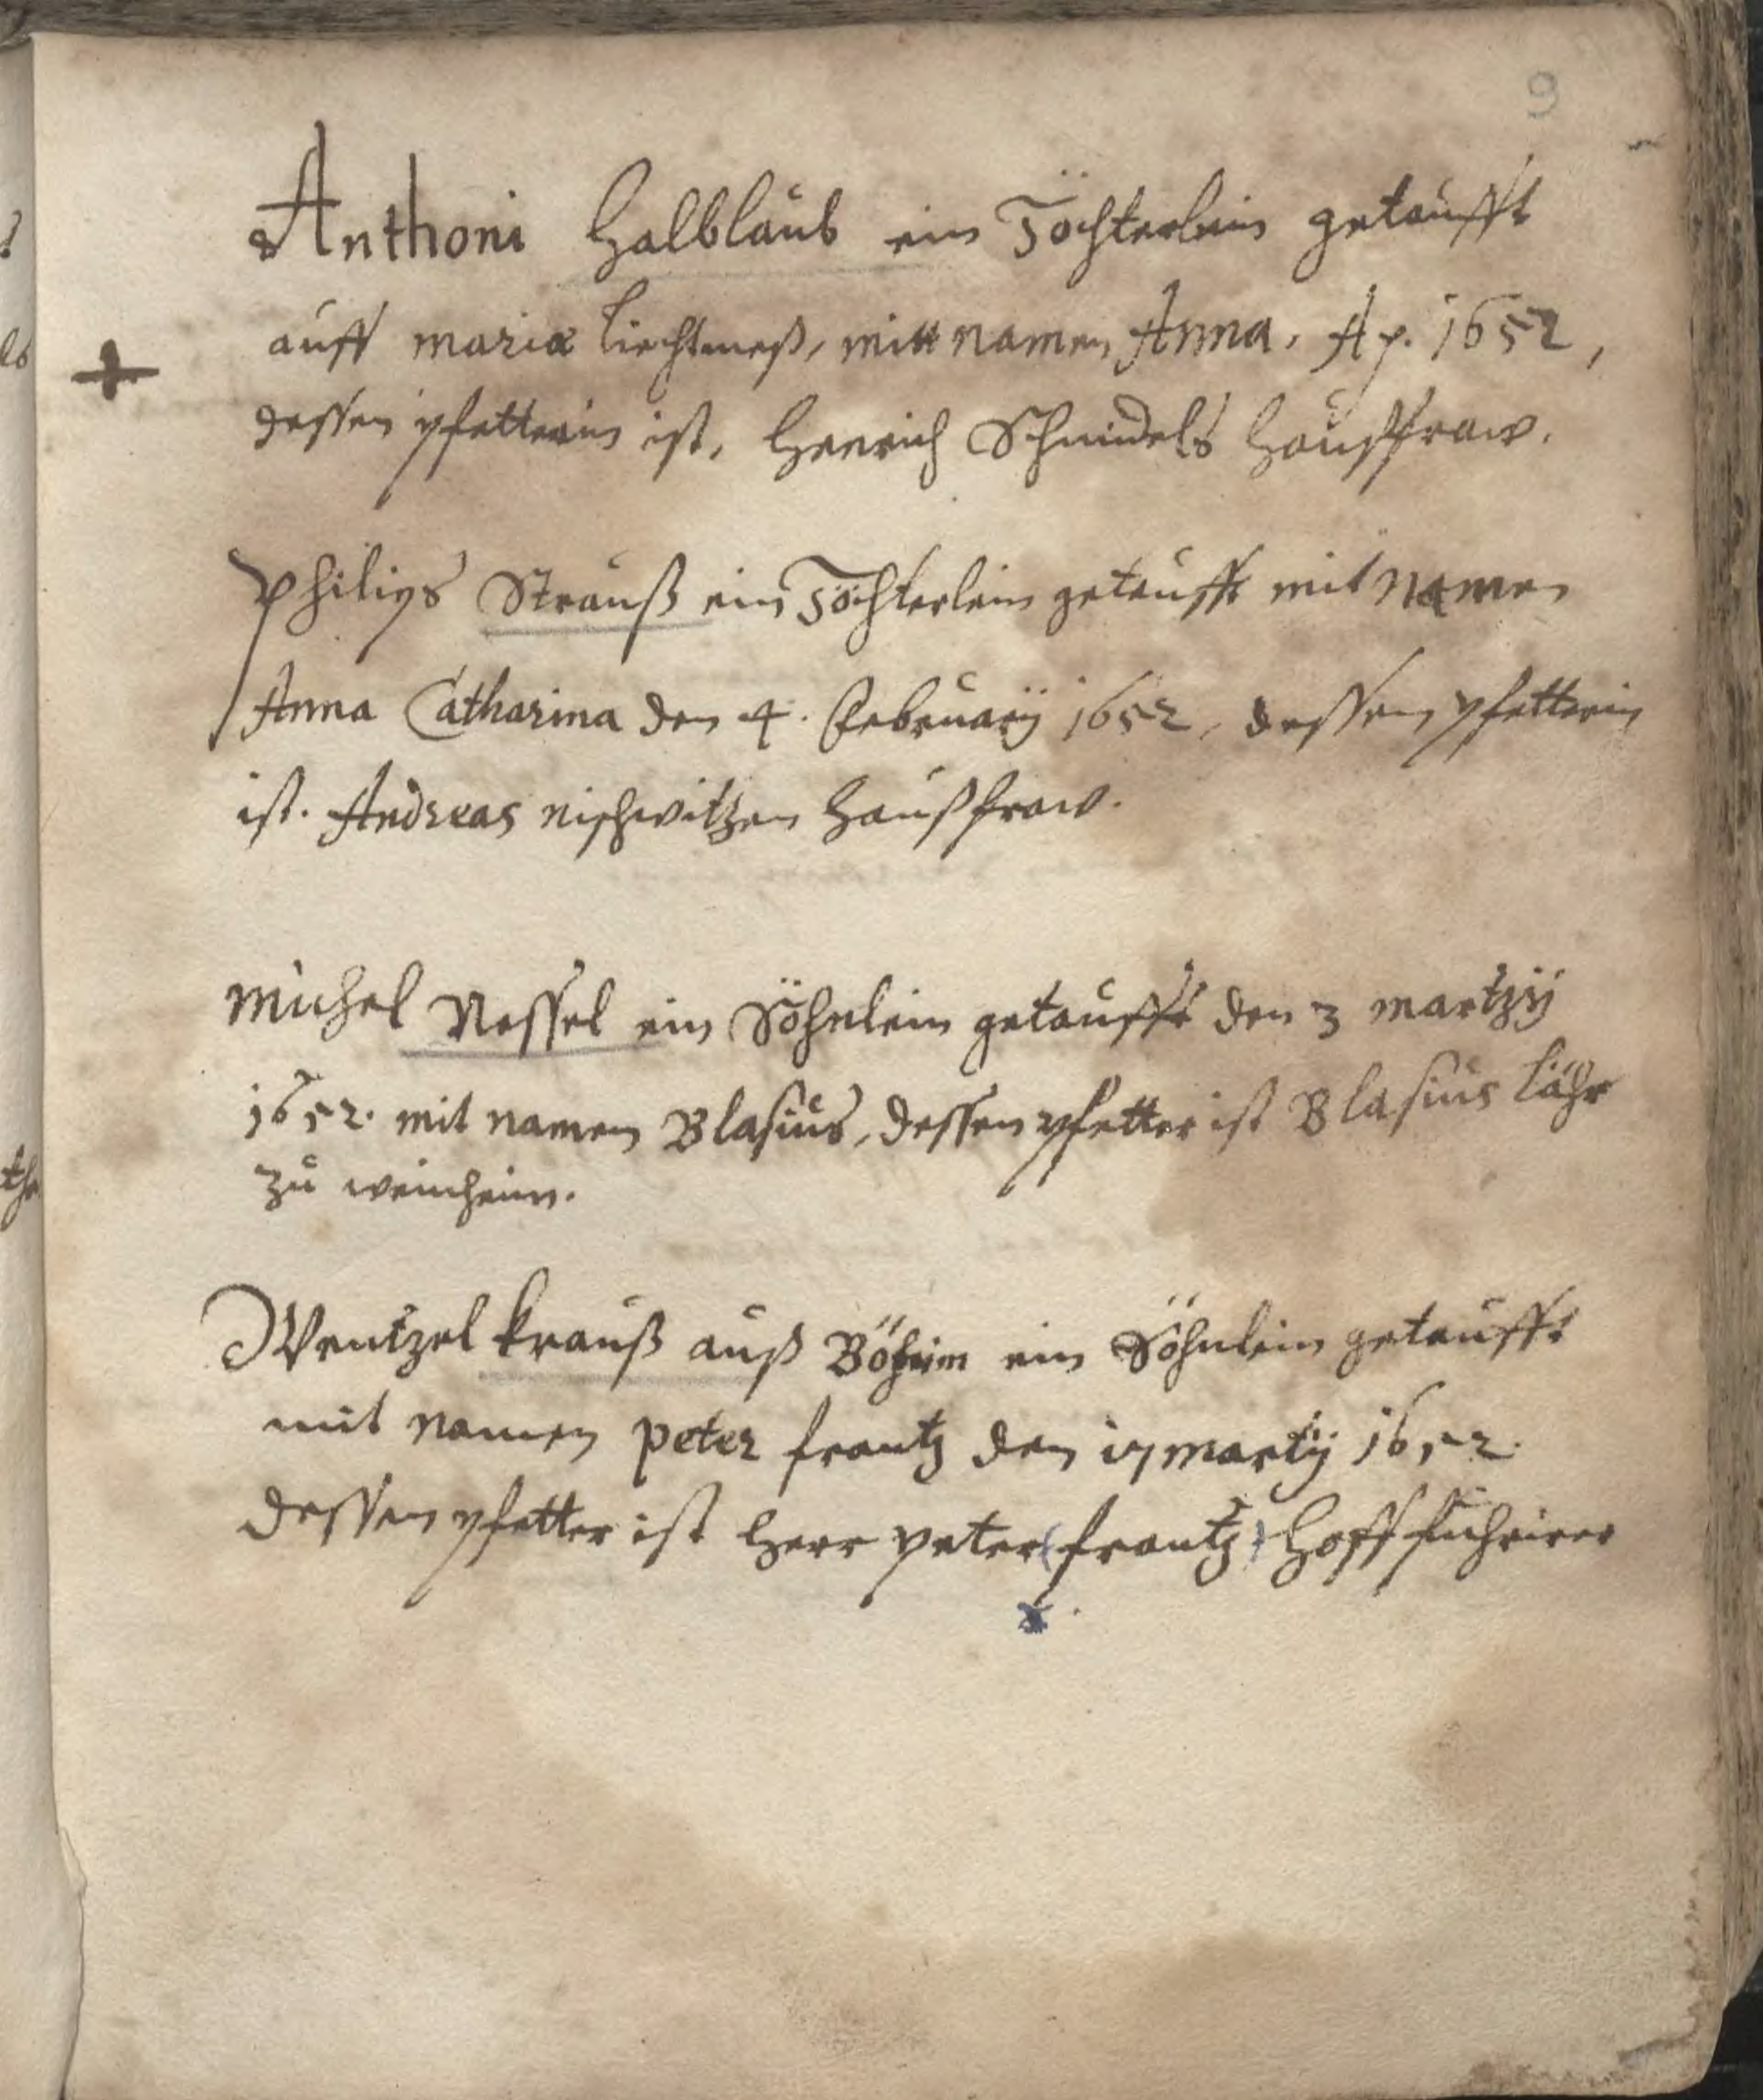 9
Anthoni Halblaub ein Töchterlein getaufft
auff mariæ liechtmeß, mitt namen Anna, A︤o︥. 1652,
dessen pfetterin ist, Henrich Schmidels Haußfraw.
Philips Strauß ein Töchterlein getaufft mit Namen
Anna Catharina den 4. februarÿ 1652, dessen pfetterin
ist. Andreas nischwitzen Haußfraw.
Michel Nessel ein Söhnlein getaufft den 3 martzÿ
1652. mit namen Blasius, dessen pfetter ist Blasius Lähr
zu weinheim.
Wentzel krauß auß Böhim ein Söhnlein getaufft
mit namen peter frantz den 17 martÿ 1652.
dessen pfetter ist Herr peter (frantz) Hoff fuhrirer